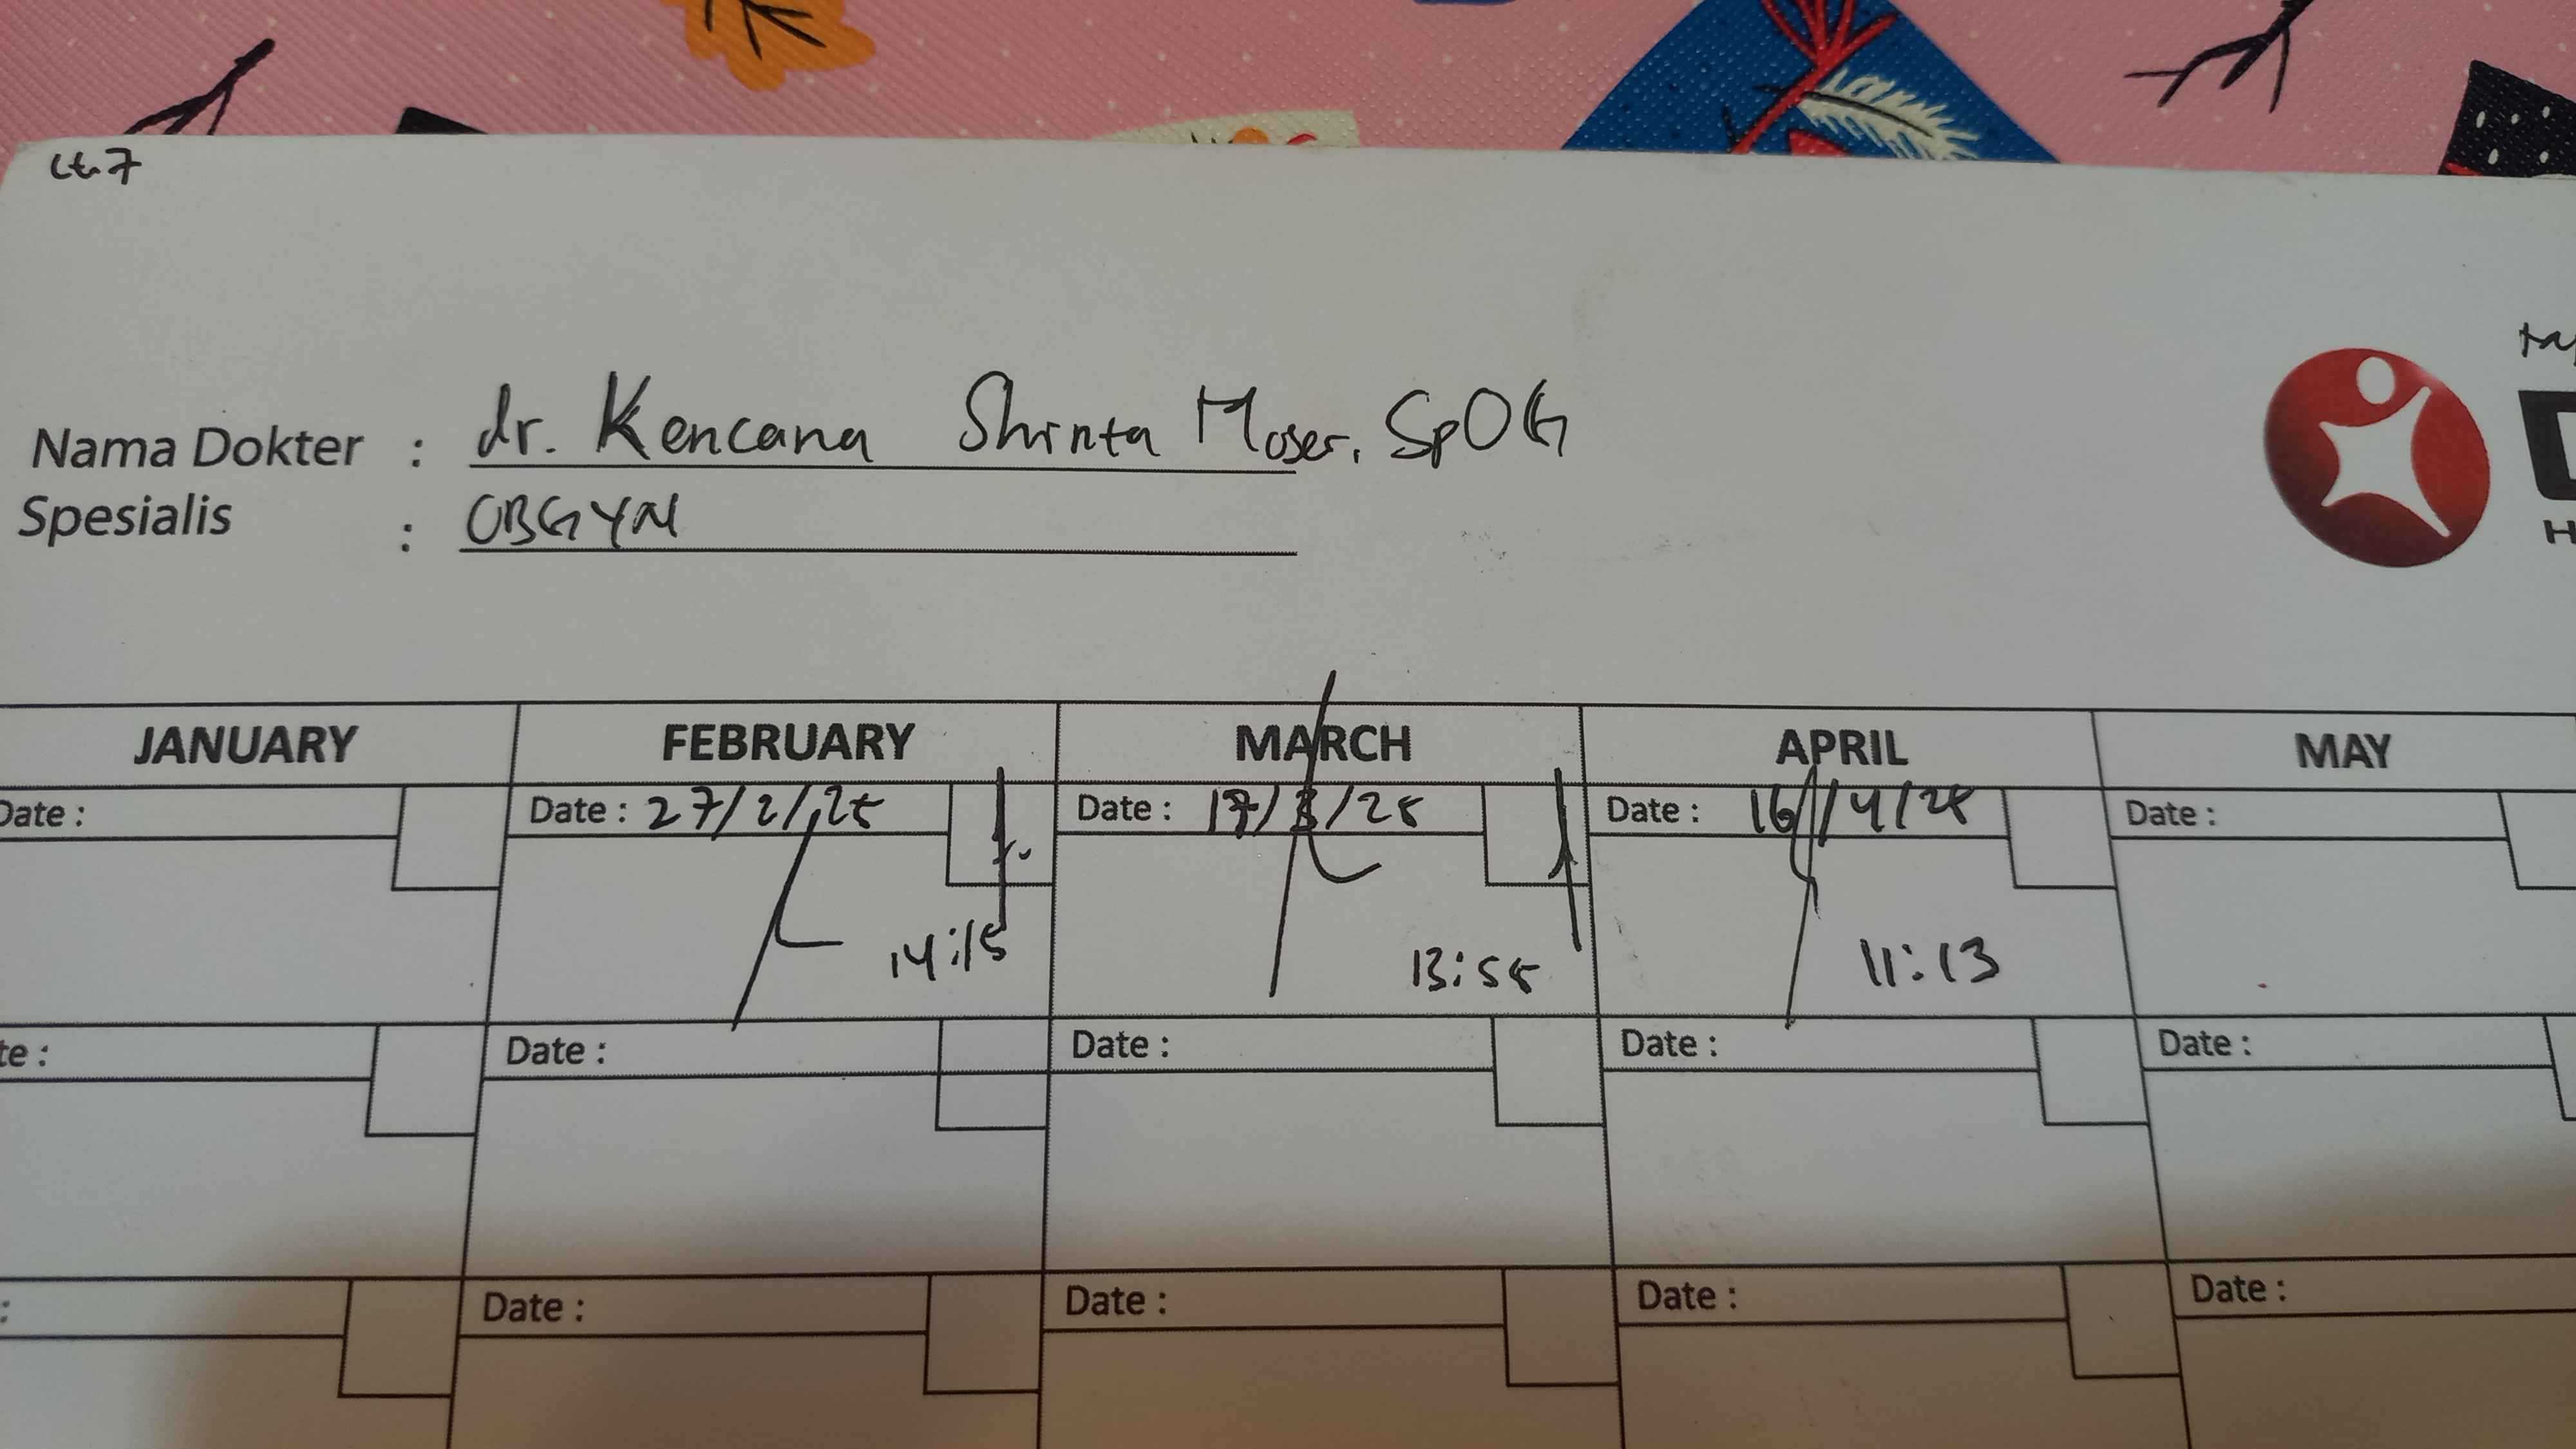 Lt.7
Nama Dokter : dr. Kencana Shinta Moser, SpOG
Spesialis : OBGYN
JANUARY FEBRUARY MARCH APRIL MAY
Date : Date : 27/2/25 Date : 17/3/25 Date : 16/4/25 Date :
14:15 13:55 11:13
te : Date : Date : Date : Date :
: Date : Date : Date : Date :